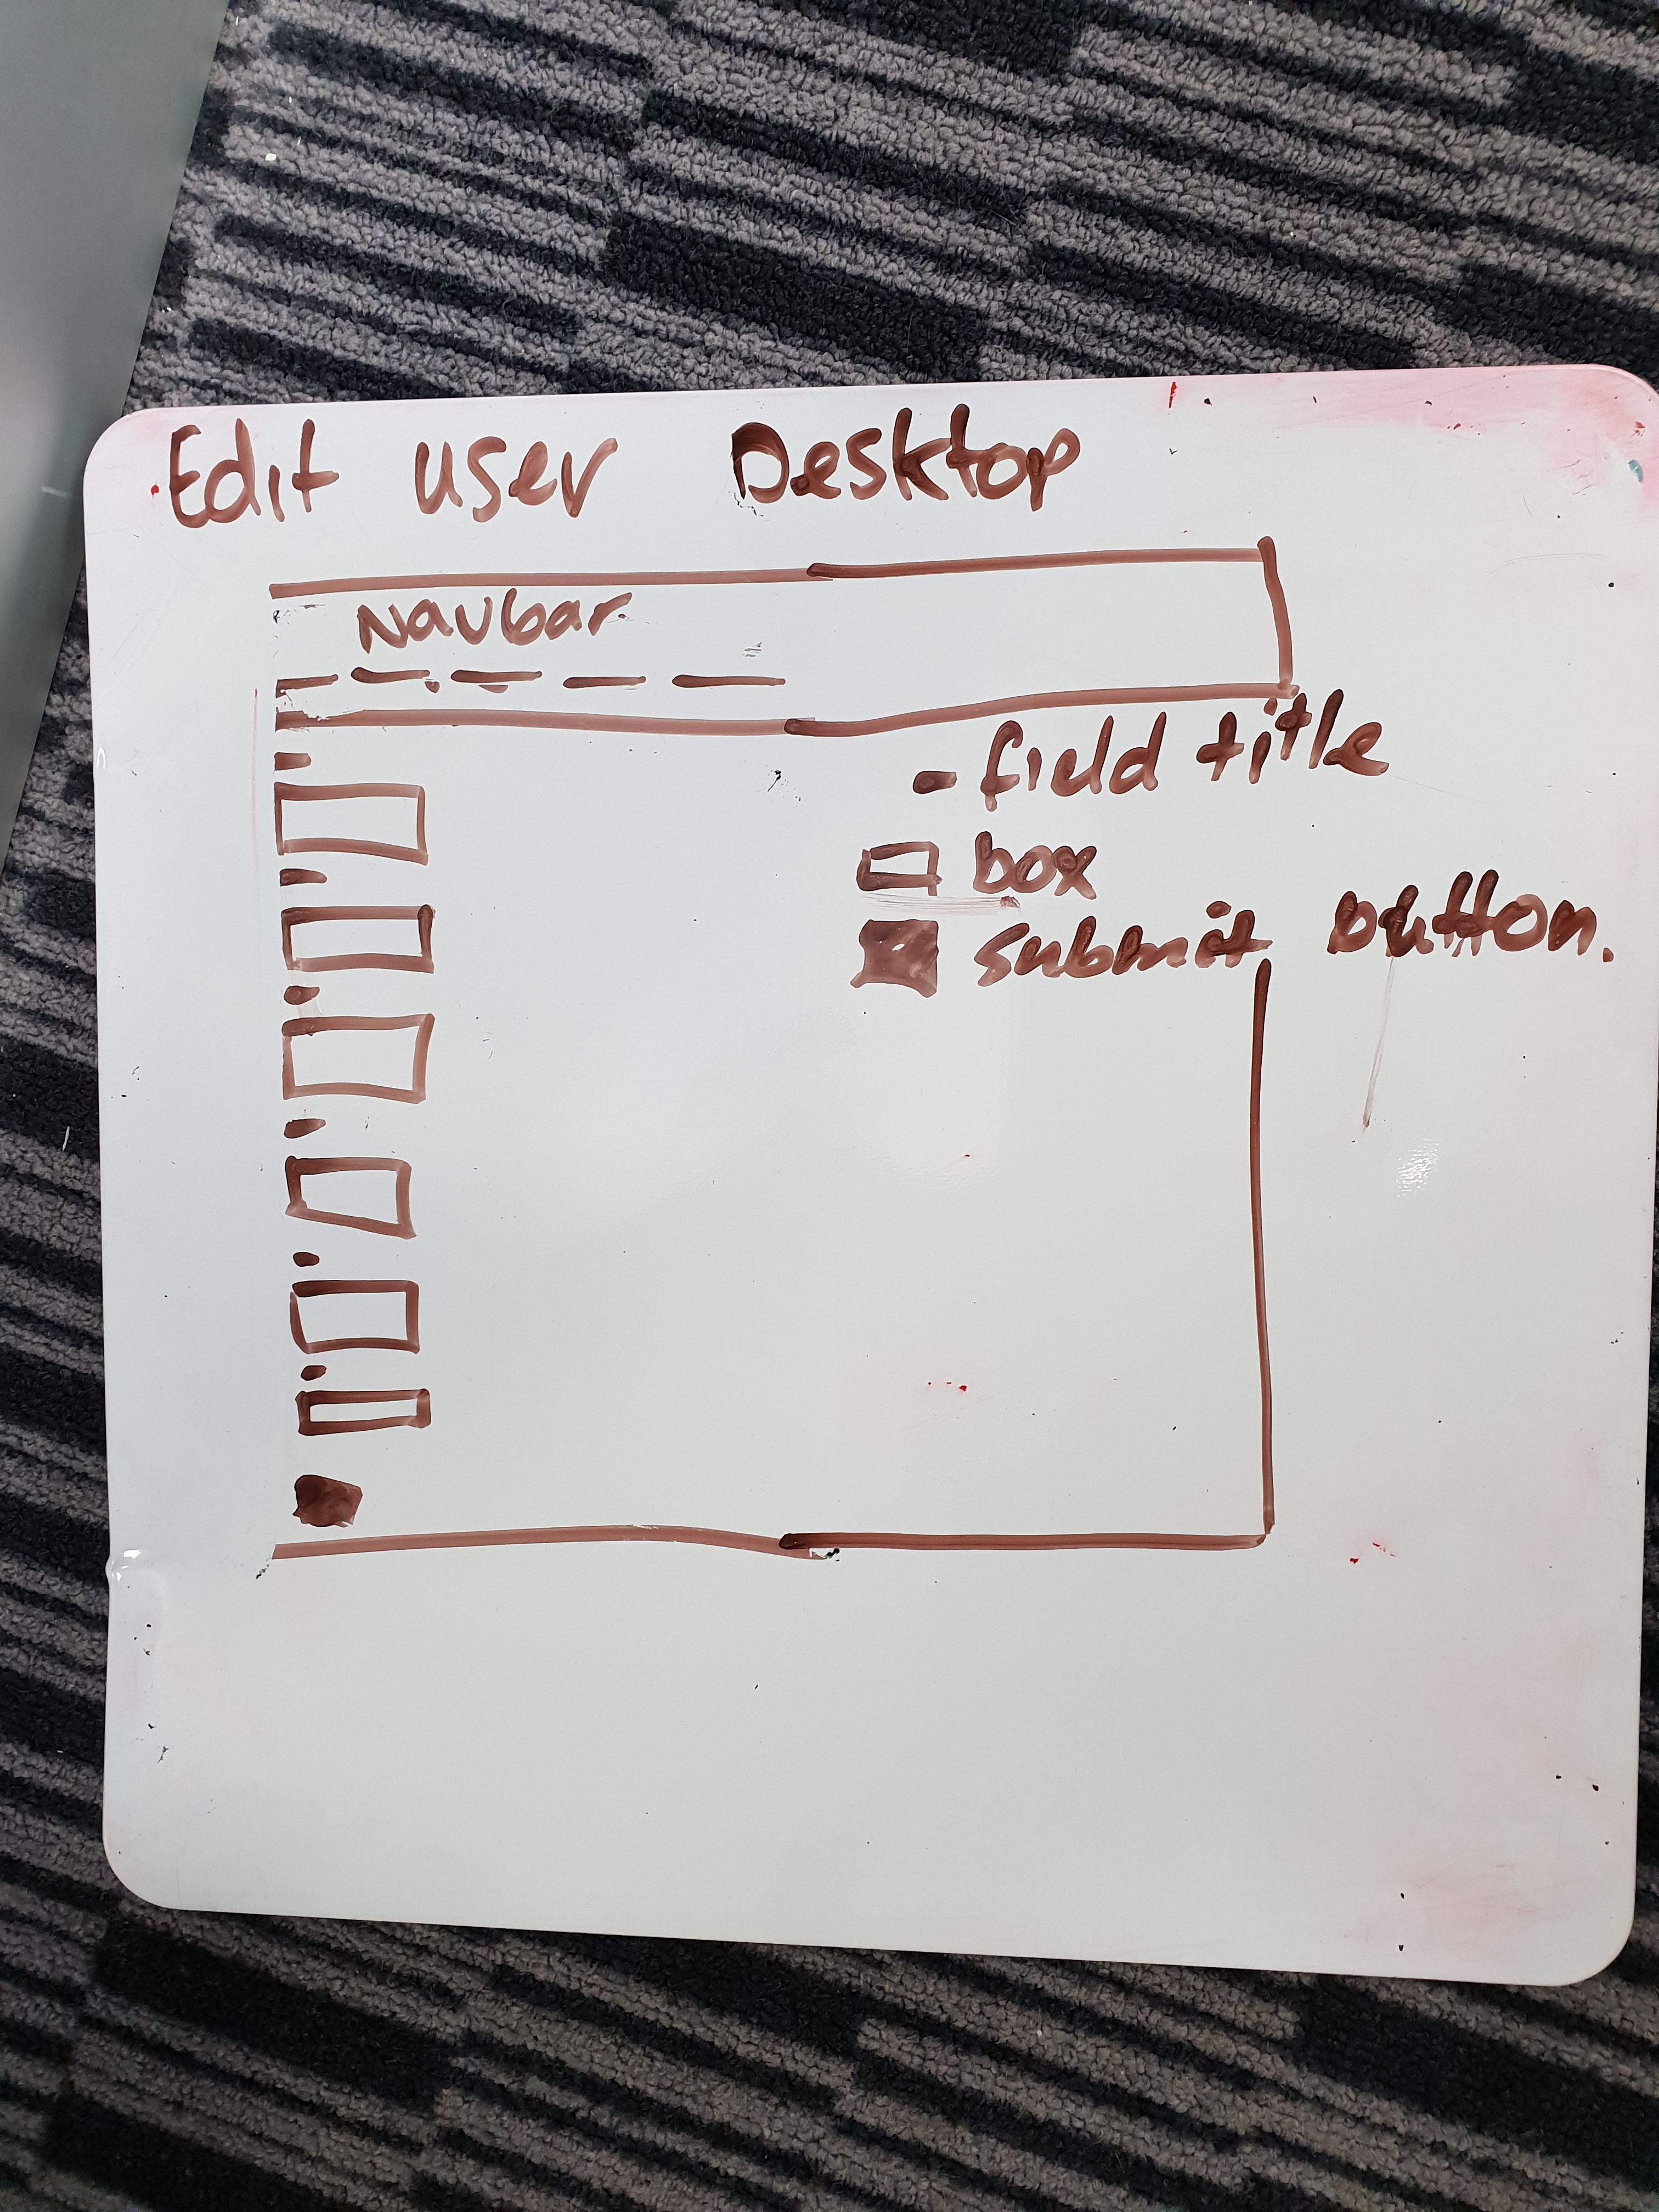 Edit user Desktop
Navbar
- field title
box
submit button.